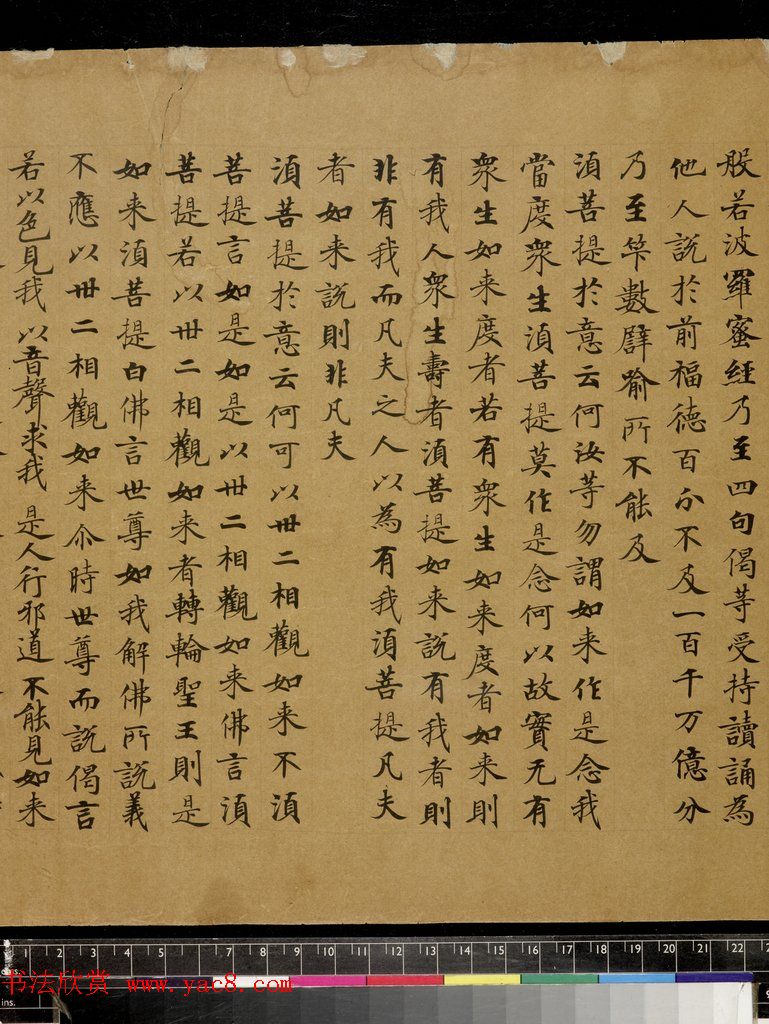 般若波羅蜜經乃至四句偈等受持讀誦為
他人說於前福德百分不及一百千万億分
乃至筭數譬喻所不能及
須菩提於意云何汝等勿謂如来作是念我
當度衆生須菩提莫作是念何以故實无有
衆生如来度者若有衆生如来度者如来則
有我人衆生壽者須菩提如来說有我者則
非有我而凡夫之人以為有我須菩提凡夫
者如来說則非凡夫
須菩提於意云何可以卅二相觀如来不須
菩提言如是如是以卅二相觀如来佛言須
菩提若以卅二相觀如来者轉輪聖王則是
如来須菩提白佛言世尊如我解佛所說義
不應以卅二相觀如来尒時世尊而說偈言
若以色見我以音聲求我是人行邪道不能見如来
cms. 1 2 3 4 5 7 8 9 10 11 12 13 14 15 16 17 18 19 20 21 22
ins.
书法欣赏 www.yac8.com